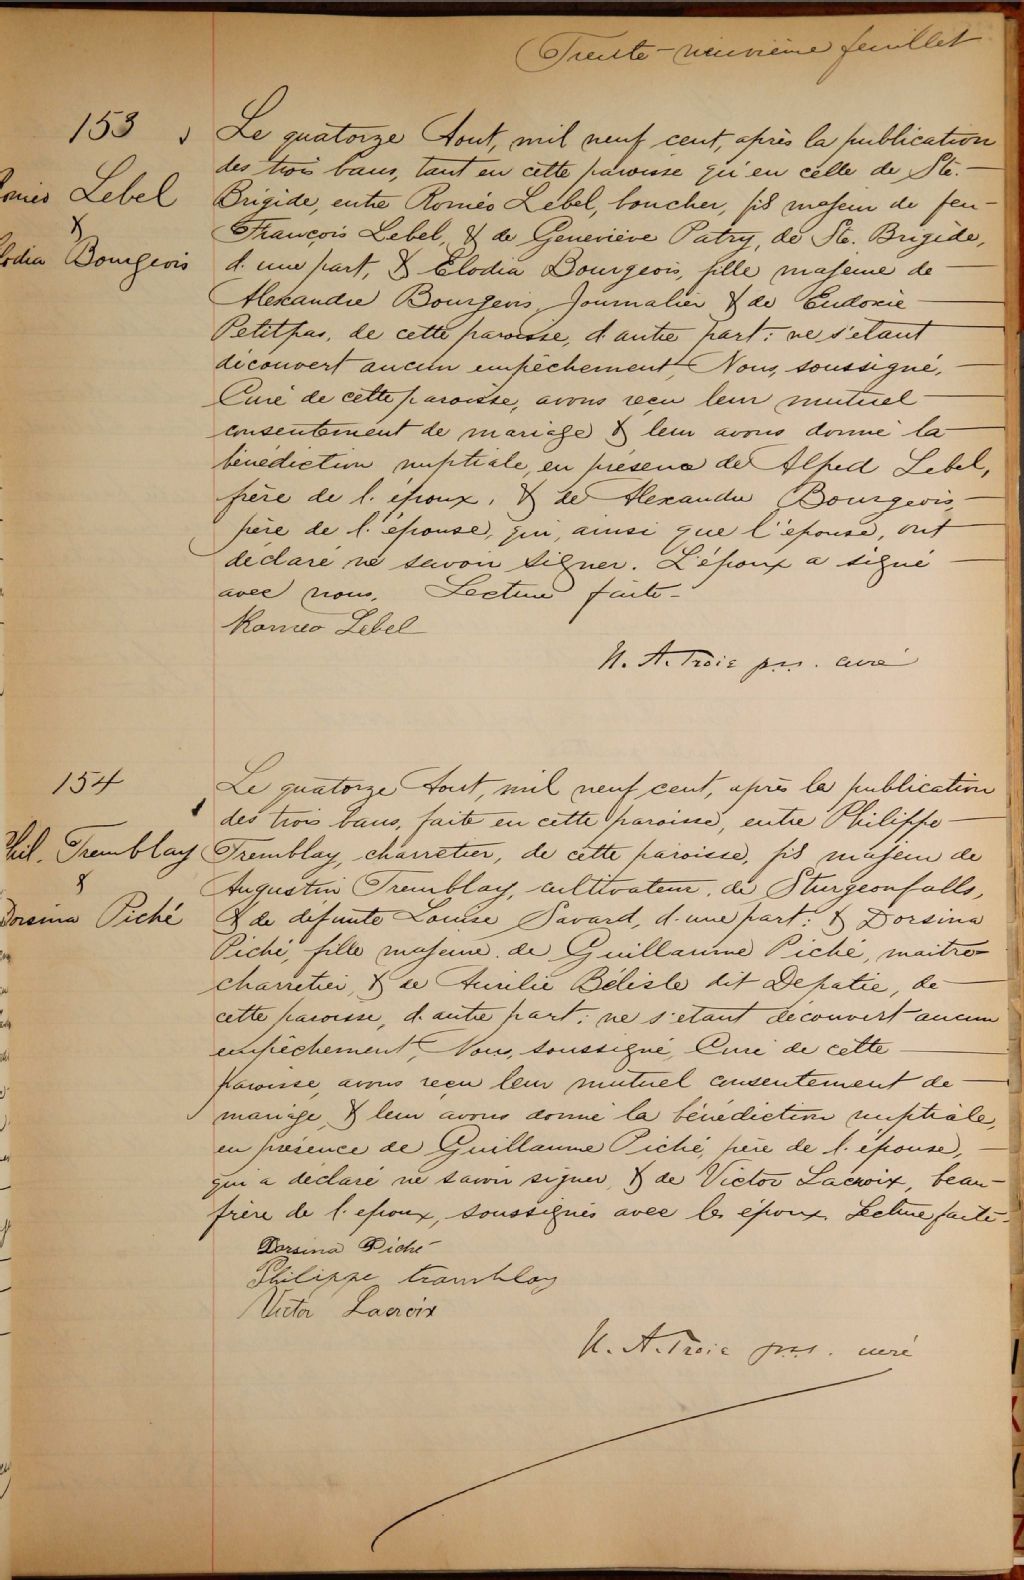 Trente-neuvième feuillet
153
Roméo Lebel
&
Elodia Bourgeois
Le quatorze Aout, mil neuf cent, après la publication
des trois bans, tant en cette paroisse qu'en celle de Ste.
Brigide, entre Roméo Lebel, boucher, fils majeur de feu
François Lebel, & de Geneviève Patry, de Ste. Brigide,
d'une part, & Elodia Bourgeois, fille majeure de
Alexandre Bourgeois, Journalier & de Eudoxie
Petitpas, de cette paroisse, d'autre part; ne s'etant
découvert aucun empêchement, Nous, soussigné,
Curé de cette paroisse, avons reçu leur mutuel
consentement de mariage & leur avons donné la
bénédiction nuptiale, en présence de Alfred Lebel,
frère de l'époux, & de Alexandre Bourgeois,
père de l'épouse, qui, ainsi que l'épouse, ont
déclaré ne savoir signer. L'époux a signé
avec nous. Lecture faite-
Romeo Lebel
N. A. Troie p.s.s. curé
154
Phil. Tremblay
&
Dorsina Piché
Le quatorze Aout, mil neuf cent, après la publication
des trois bans, faite en cette paroisse, entre Philippe
Tremblay, charretier, de cette paroisse, fils majeur de
Augustin Tremblay, cultivateur, de Sturgeonfalls,
& de défunte Louise Savard, d'une part; & Dorsina
Piché, fille majeure de Guillaume Piché, maitre-
charretier, & de Aurélie Bélisle dit Depatie, de
cette paroisse, d'autre part; ne s'etant découvert aucun
empêchement, Nous, soussigné, Curé de cette
paroisse, avons reçu leur mutuel consentement de
mariage, & leur avons donné la bénédiction nuptiale,
en présence de Guillaume Piché, père de l'épouse,
qui a déclaré ne savoir signer, & de Victor Lacroix, beau-
frère de l'epoux, soussignés avec les époux. Lecture faite-
Dorsina Piché
Philippe tramblay
Victor Lacroix
N. A. Troie p.s.s. curé